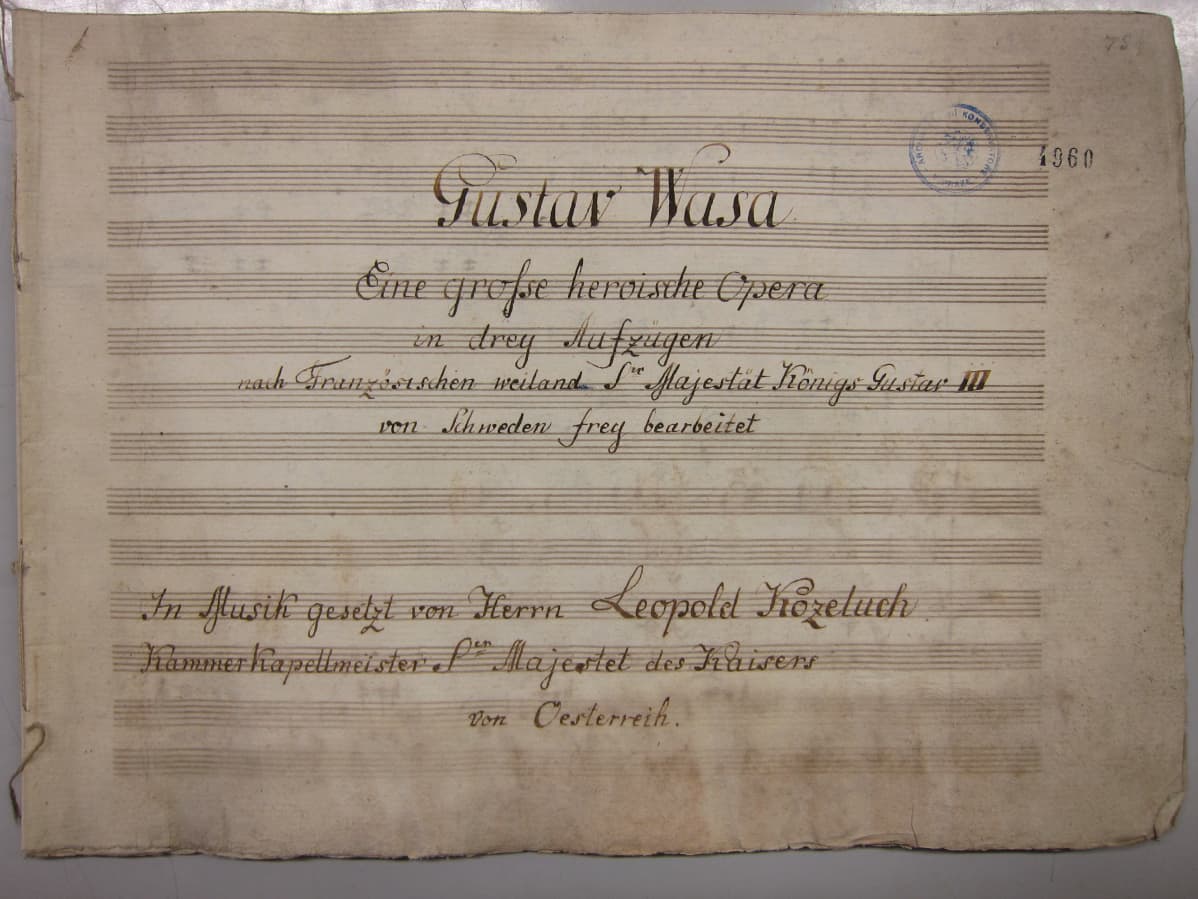 784
4960
Gustav Wasa
Eine grosse heroische Opera
in drey Aufzügen
nach Französischen weiland Sr Majestät Königs Gustav III
von Schweden frey bearbeitet
In Musik gesetzt von Herrn Leopold Kozeluch
Kammerkapellmeister Sr Majestet des Kaisers
von Oesterreih.